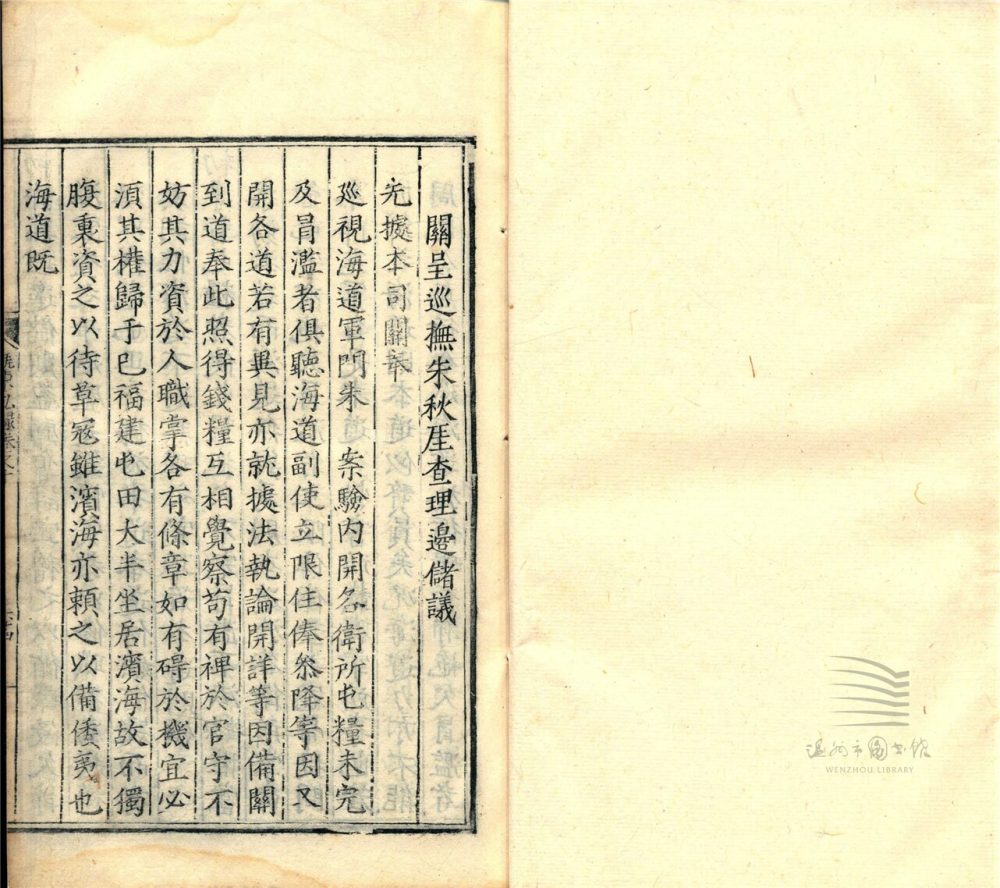 關呈巡撫朱秋厓查理邊儲議
先據本司關奉
廵視海道軍門朱 案驗内開各衛所屯糧未完
及冐濫者俱聽海道副使立限住俸叅降等因又
開各道若有異見亦就據法執論開詳等因備關
到道奉此照得錢糧互相覺察苟有裨於官守不
妨其力資於人職掌各有條章如有碍於機宜必
湏其權歸于已福建屯田大半坐居濱海故不獨
腹裏資之以待草冦雖濱海亦賴之以備倭夷也
海道既
温州市圖書館
WENZHOU LIBRARY